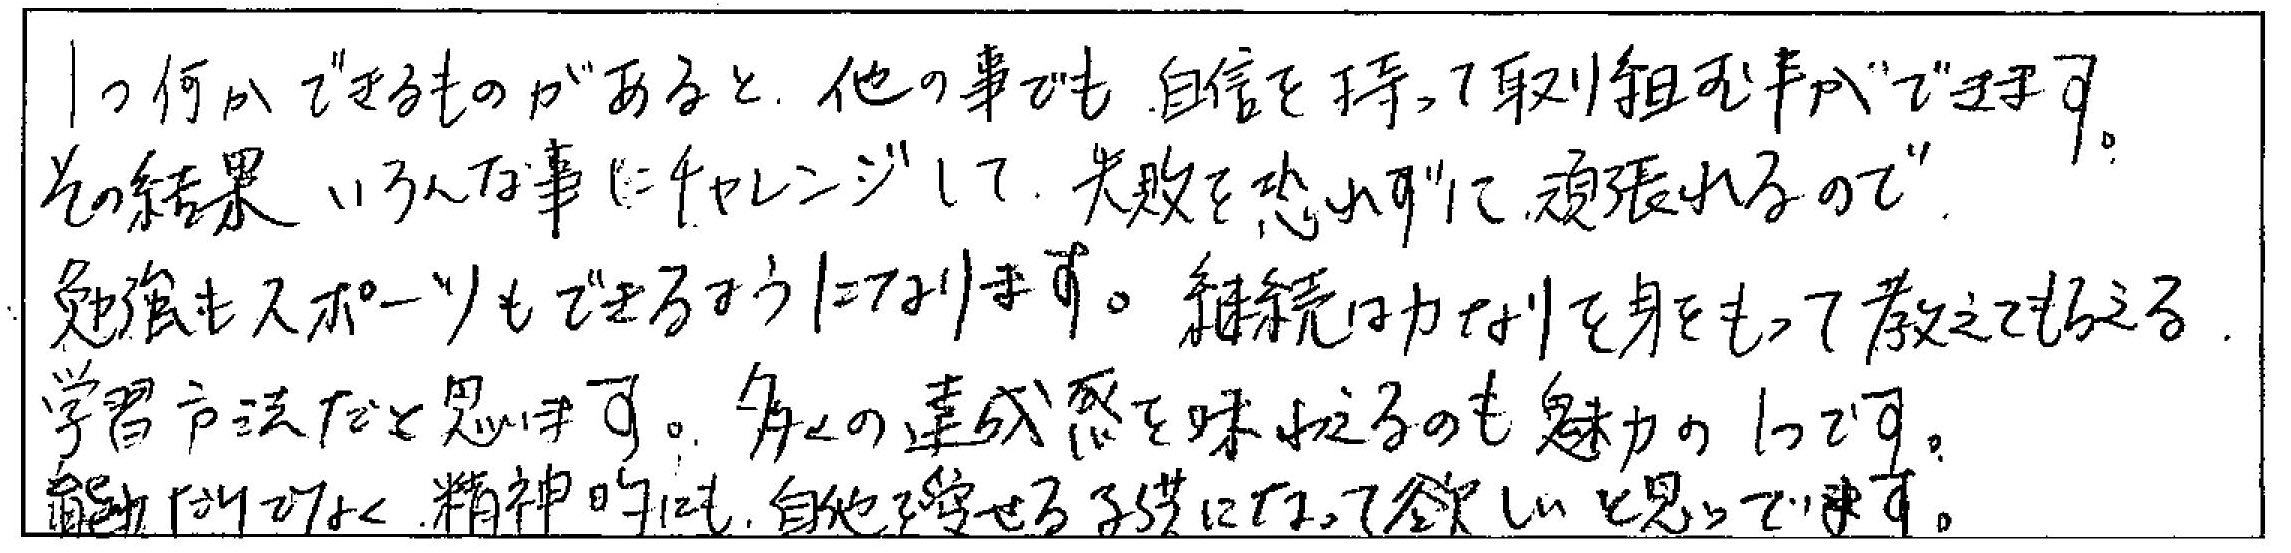 1つ何かできるものがあると、他の事でも自信を持って取り組む事ができます。
その結果いろんな事にチャレンジして、失敗を恐れずに頑張れるので、
勉強もスポーツもできるようになります。継続は力なりを身をもって教えてもらえる
学習方法だと思います。多くの達成感を味わえるのも魅力の1つです。
能力だけでなく、精神的にも、自他を愛せる子供になって欲しいと思っています。